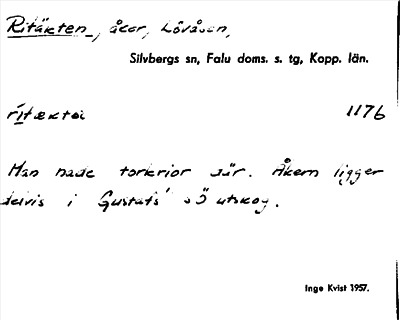 Ritäkten, åker, Lövåsen,
Silvbergs sn, Falu doms. s. tg, Kopp. län.
rìtæktəi 1176
Man hade torkrior där. Åkern ligger
delvis i Gustafs' sö utskog.
Inge Kvist 1957.